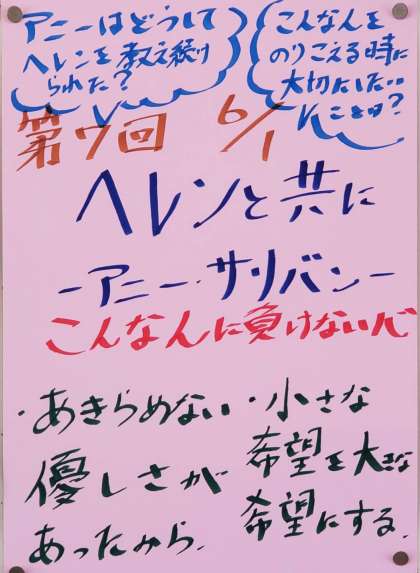 アニーはどうして
ヘレンを教え続け
られた？
こんなんを
のりこえる時に
大切にした‥
ことは？
第7回 6/1
ヘレンと共に
－アニー・サリバン－
こんなんに負けない心
・あきらめない
優しさが
あったから.
・小さな
希望を大きな
希望にする.